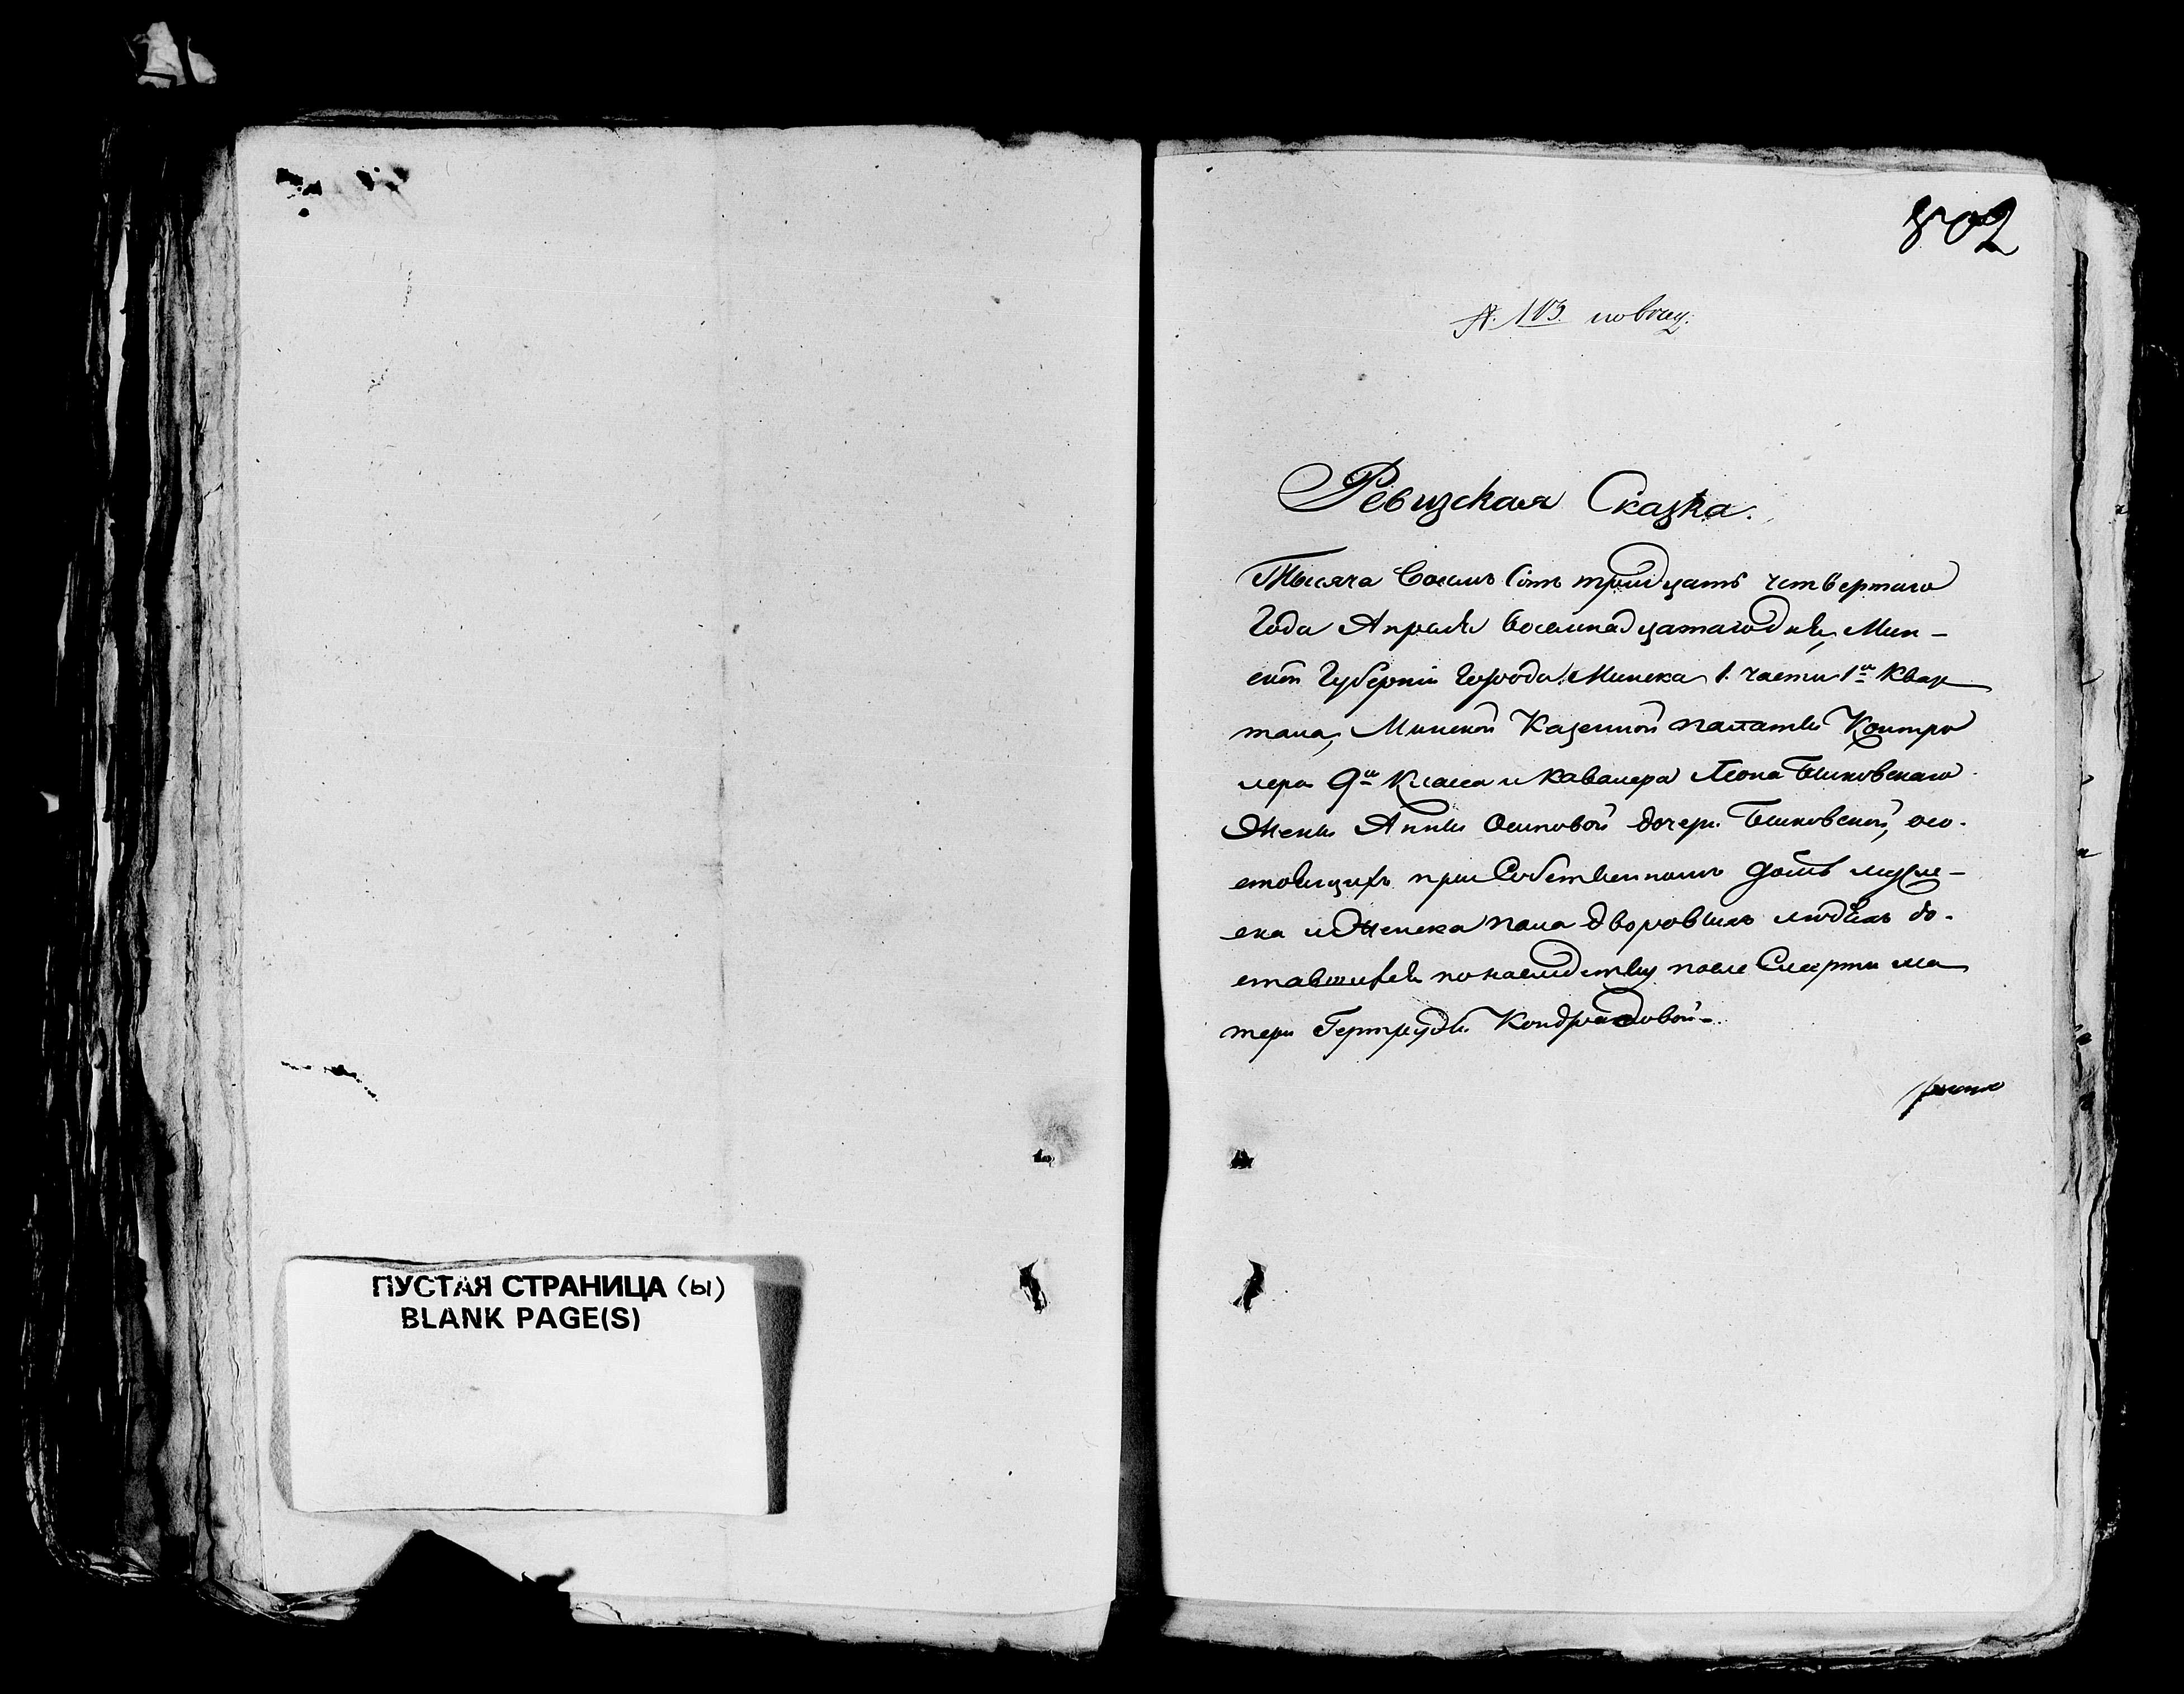 ПУСТАЯ СТРАНИЦА (ы)
BLANK PAGE(S)
802
Ревизская Сказка.
Тысяча Восемь Сотъ тридцать четвертаго
Года Апреля восемнадцатаго дня, Мин-
ской Губерніи Города Минска 1. части 1й Квар
тала, Минской Казенной палаты Контро
лера 9го Класса и Кавалера Леона
Жены Анны Осиповой дочери о со-
стоящихъ при Собственномъ домѣ муже-
ска и Женска пола дворовыхъ людяхъ до-
ставшихся по наследству после Смерти ма
тери Гертруды